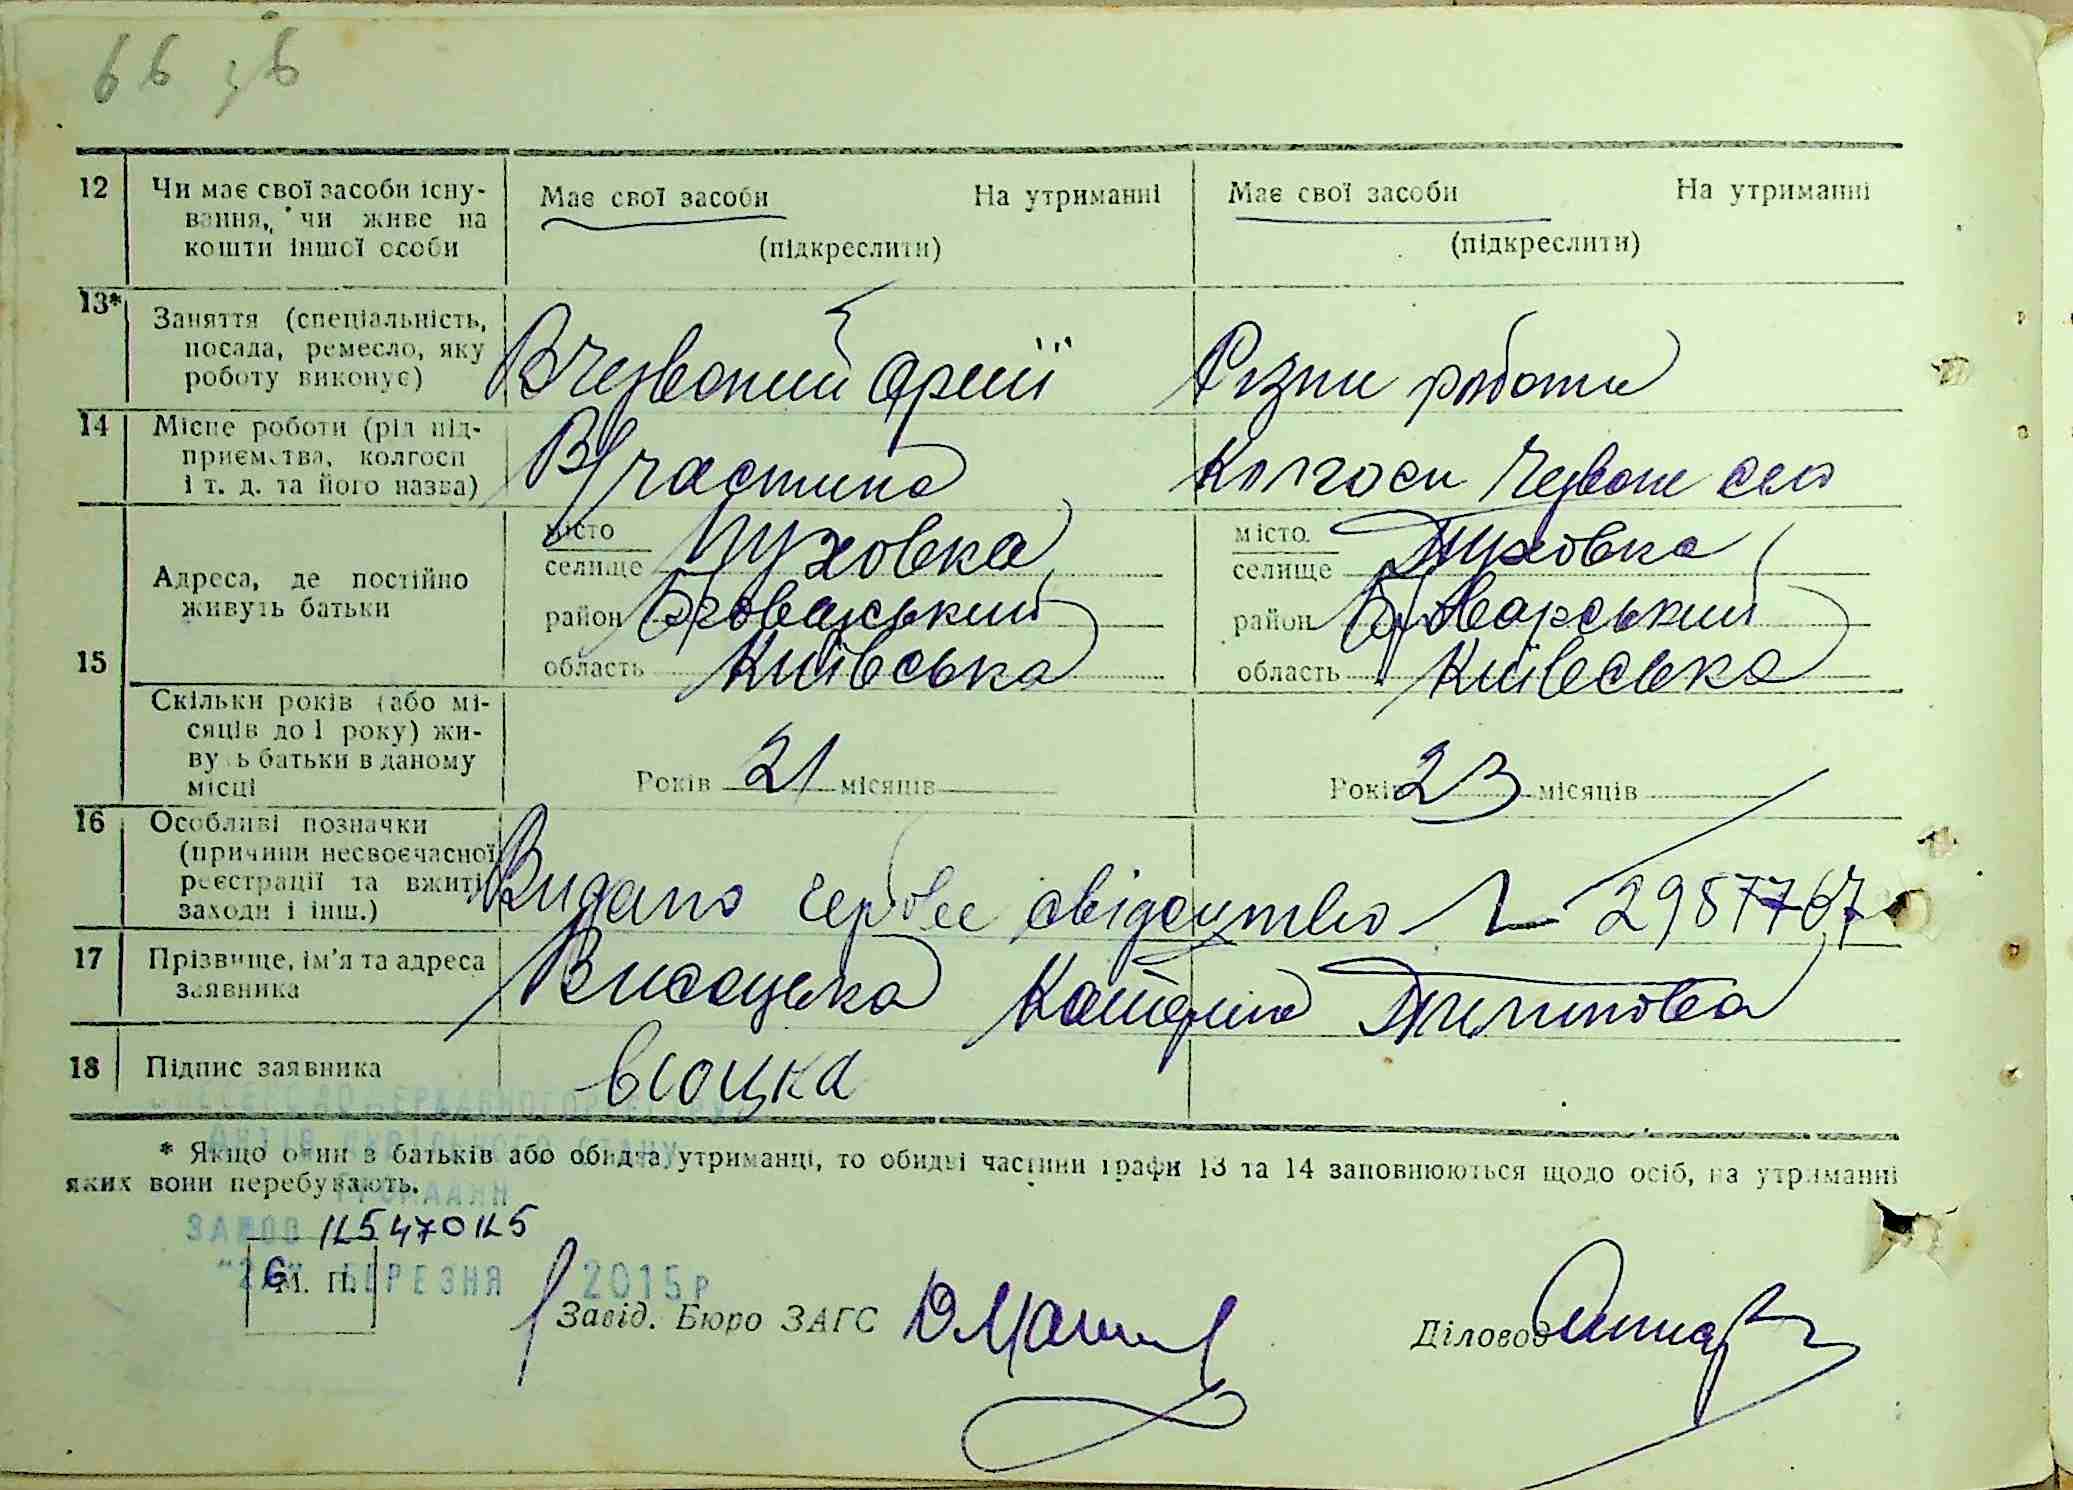 66 зб
12 Чи має свої засоби існу- Має свої засоби На утриманні Має свої засоби На утриманні
вання, чи живе на
кошти іншої особи (підкреслити) (підкреслити)
13*
Заняття (спеціальність,
посада, ремесло, яку В Червоний армії Різни роботи
роботу виконує)
14 Місце роботи (рід під-
приємства, колгосп В/частина Колгосп Червоне село
і т. д. та його назва)
місто Пуховка місто Пуховка
Адреса, де постійно селище селище
живуть батьки район Броварський район Броварський
15 область Київська область Київська
Скільки років (або мі-
сяців до 1 року) жи-
вуть батьки в даному Років 21 місяців Років 23 місяців
місці
16 Особливі позначки
(причини несвоєчасної
реєстрації та вжиті Видано свідоцтво 2987767
заходи і інш.)
17 Прізвище, ім'я та адреса Висоцька Катерина
заявника
18 Підпис заявника Висоцка
АКТІВ ЦИВІЛЬНОГО СТАНУ
* Якщо один з батьків або обидва утриманці, то обидві частини графи 13 та 14 заповнюються щодо осіб, на утриманні
яких вони перебувають.
ГРОМАДЯН
М. П. БЕРЕЗНЯ 2015р
Завід. Бюро ЗАГС Діловод